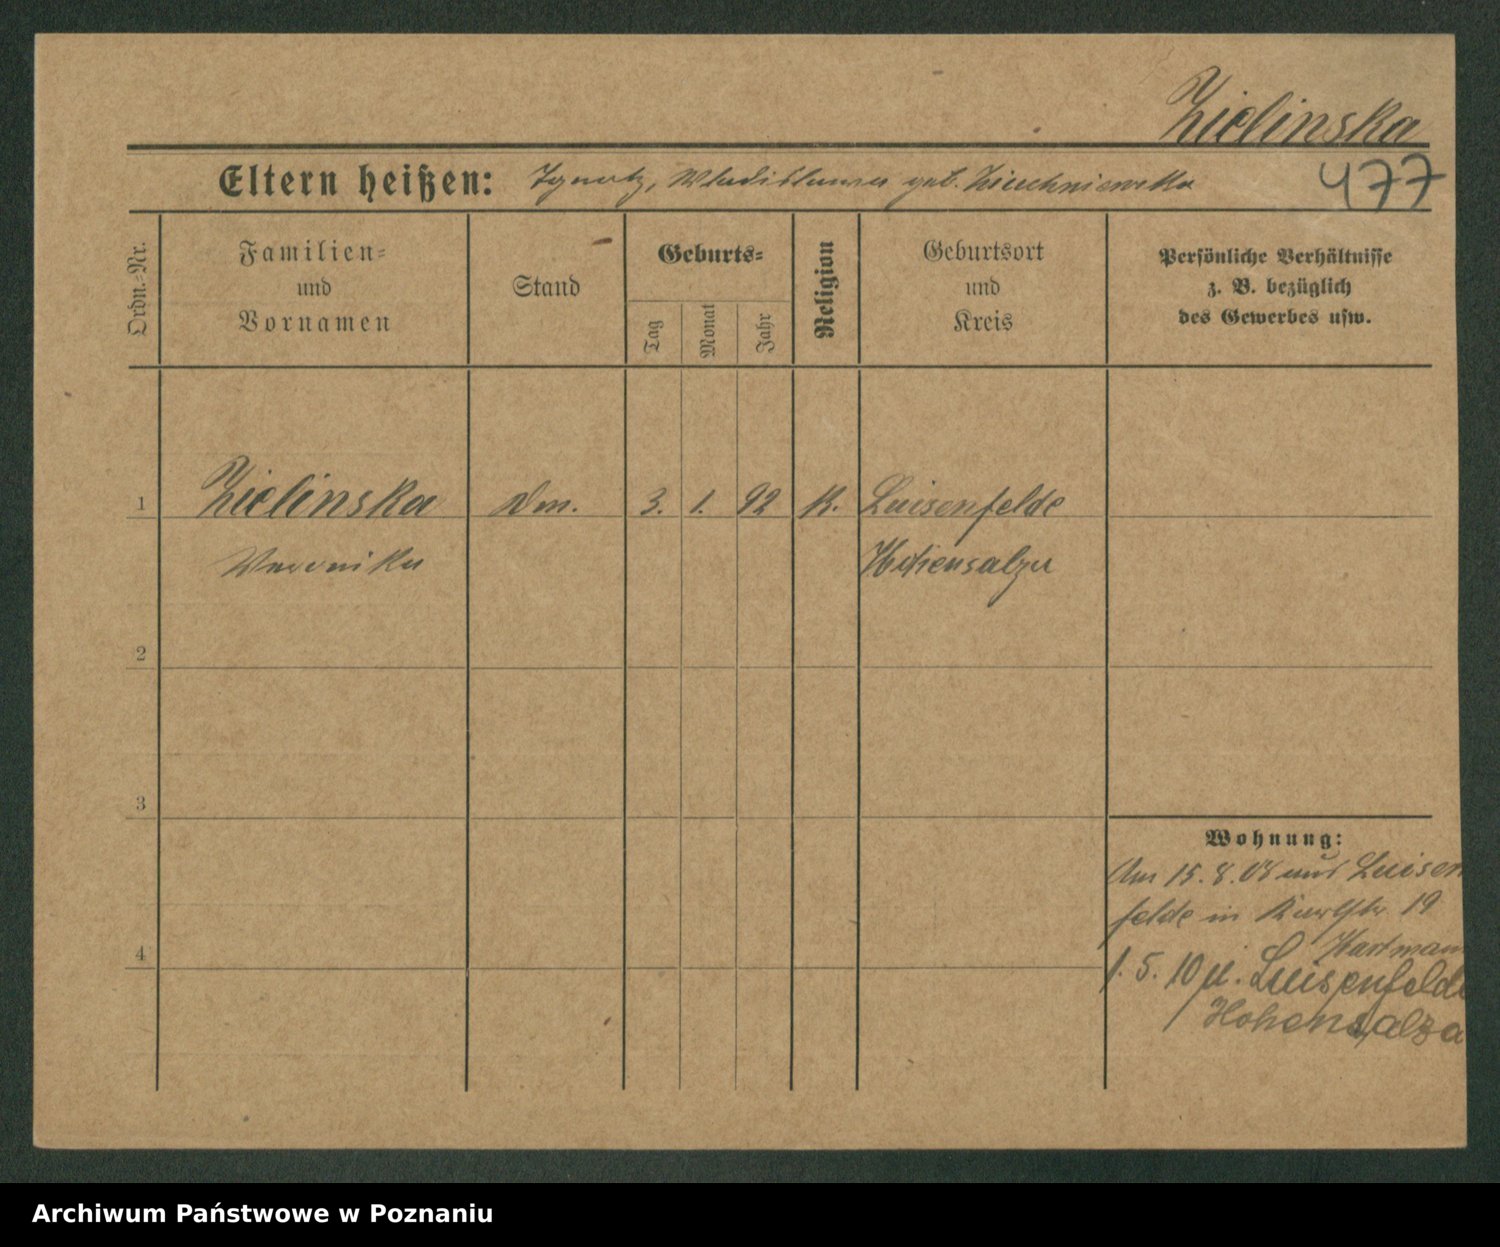 Zielinska
477
Eltern heißen: Ignatz, Wladislawa geb.
Ordn.-Nr.
Familien=
und
Vornamen
Stand
Geburts=
Tag
Monat
Jahr
Religion
Geburtsort
und
Kreis
Persönliche Verhältnisse
z. B. bezüglich
des Gewerbes usw.
1 Zielinska 3. 1. 92 K. Luisenfelde
Veronika Hohensalza
2
3
4
Wohnung:
Am 15. 8. 08 aus Luisen
felde in 19
Hartmann
1. 5. 10 n. Luisenfelde
Hohensalza
Archiwum Państwowe w Poznaniu